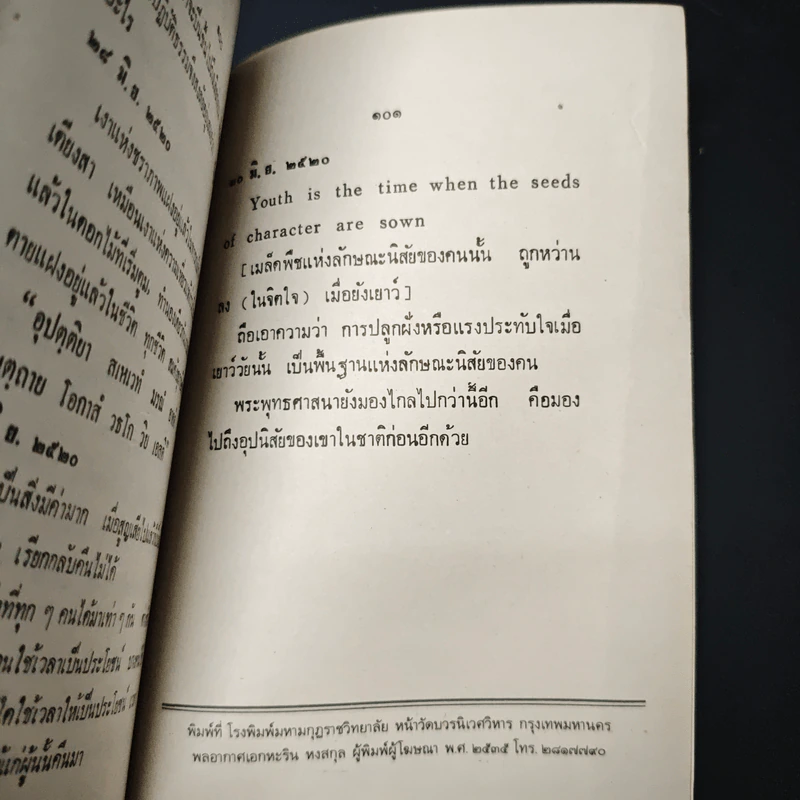 อะไร
๒๘ มิ.ย. ๒๕๒๐
เงาแห่งชราภาพแฝงอยู่แล้วใน
เดียงสา เหมือนเงาแห่งความ
แล้วในดอกไม้ที่เริ่มตูม,
ตายแฝงอยู่แล้วในชีวิต ทุกชีวิต
“อุปตฺติยา สเหเวทํ มรณํ
โอกาสํ วธโก วิย
ย. ๒๕๒๐
เป็นสิ่งมีค่ามาก เมื่อสูญเสียไปแล้ว
เรียกกลับคืนไม่ได้
ที่ทุก ๆ คนได้มาเท่า ๆ กัน
คนใช้เวลาเป็นประโยชน์
ใดใช้เวลาให้เป็นประโยชน์
แก่ผู้นั้นคืนมา
๑๐๑
๓๐ มิ.ย. ๒๕๒๐
Youth is the time when the seeds
of character are sown
[เมล็ดพืชแห่งลักษณะนิสัยของคนนั้น ถูกหว่าน
ลง (ในจิตใจ) เมื่อยังเยาว์]
ถือเอาความว่า การปลูกฝังหรือแรงประทับใจเมื่อ
เยาว์วัยนั้น เป็นพื้นฐานแห่งลักษณะนิสัยของคน
พระพุทธศาสนายังมองไกลไปกว่านี้อีก คือมอง
ไปถึงอุปนิสัยของเขาในชาติก่อนอีกด้วย
พิมพ์ที่ โรงพิมพ์มหามกุฏราชวิทยาลัย หน้าวัดบวรนิเวศวิหาร กรุงเทพมหานคร
พลอากาศเอกหะริน หงสกุล ผู้พิมพ์ผู้โฆษณา พ.ศ. ๒๕๓๕ โทร. ๒๘๑๗๗๙๐